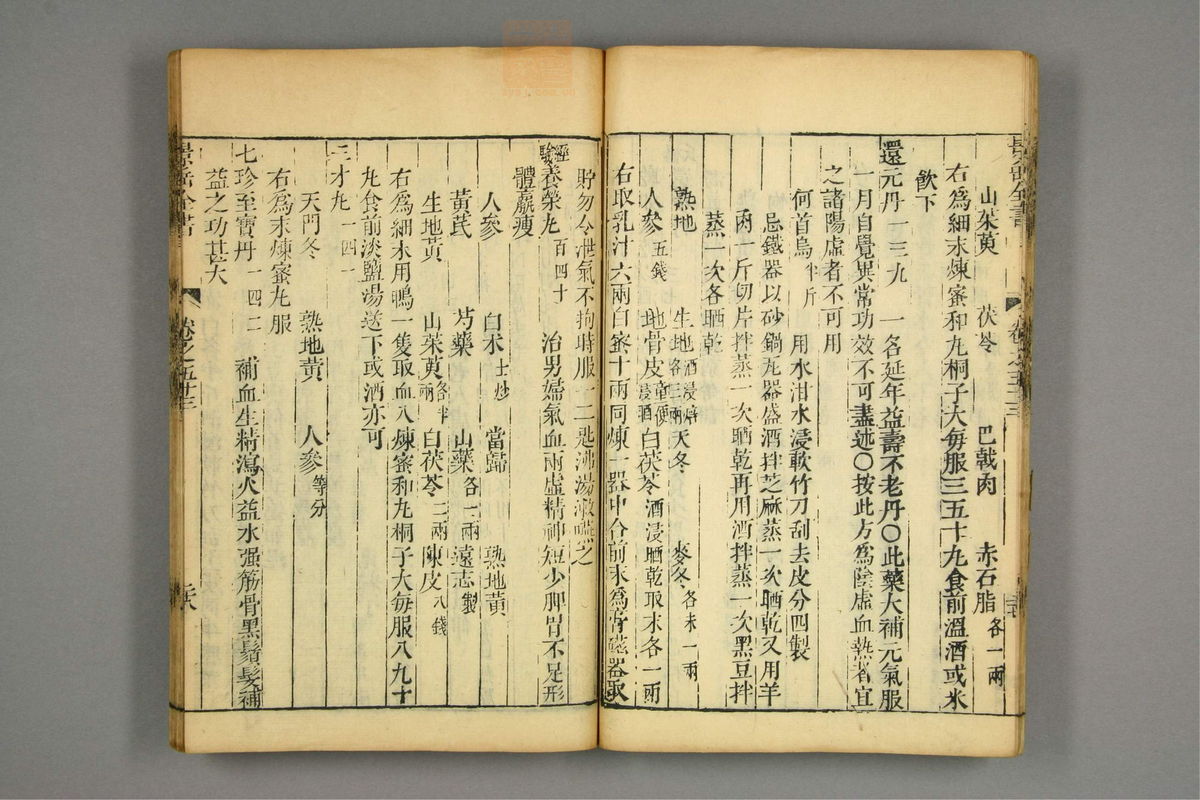 山茱萸 茯苓 巴戟肉 赤石脂各一兩
右爲細末煉蜜和丸桐子大每服三五十丸食前溫酒或米
飲下
還元丹一三九 一名延年益壽不老丹○此藥大補元氣服
一月自覺異常功效不可盡述○按此方爲陰虛血熱者宜
之諸陽虛者不可用
何首烏半斤 用水泔水浸軟竹刀刮去皮分四製
忌鐵器以砂鍋瓦器盛酒拌芝麻蒸一次晒乾又用羊
肉一斤切片拌蒸一次晒乾再用酒拌蒸一次黑豆拌
蒸一次各晒乾
熟地 生地酒浸焙各三兩 天冬 麥冬各末一兩
人參五錢 地骨皮童便浸晒 白茯苓酒浸晒乾取末各一兩
右取乳汁六兩白蜜十兩同煉一器中合前末爲膏磁器取
貯勿令泄氣不拘時服一二匙沸湯漱嚥之
經驗養榮丸百四十 治男婦氣血兩虛精神短少脾胃不足形
體羸瘦
人參 白朮土炒 當歸 熟地黃
黃芪 芍藥 山藥各一兩 遠志製
生地黃 山茱萸各半兩 白茯苓二兩 陳皮八錢
右爲細末用鴨一隻取血入煉蜜和丸桐子大每服八九十
丸食前淡鹽湯送下或酒亦可
三才丸一四一
天門冬 熟地黃 人參等分
右爲末煉蜜丸服
七珍至寶丹一四二 補血生精瀉火益水强筋骨黑鬚髮補
益之功甚大
景岳全書
卷之五十三